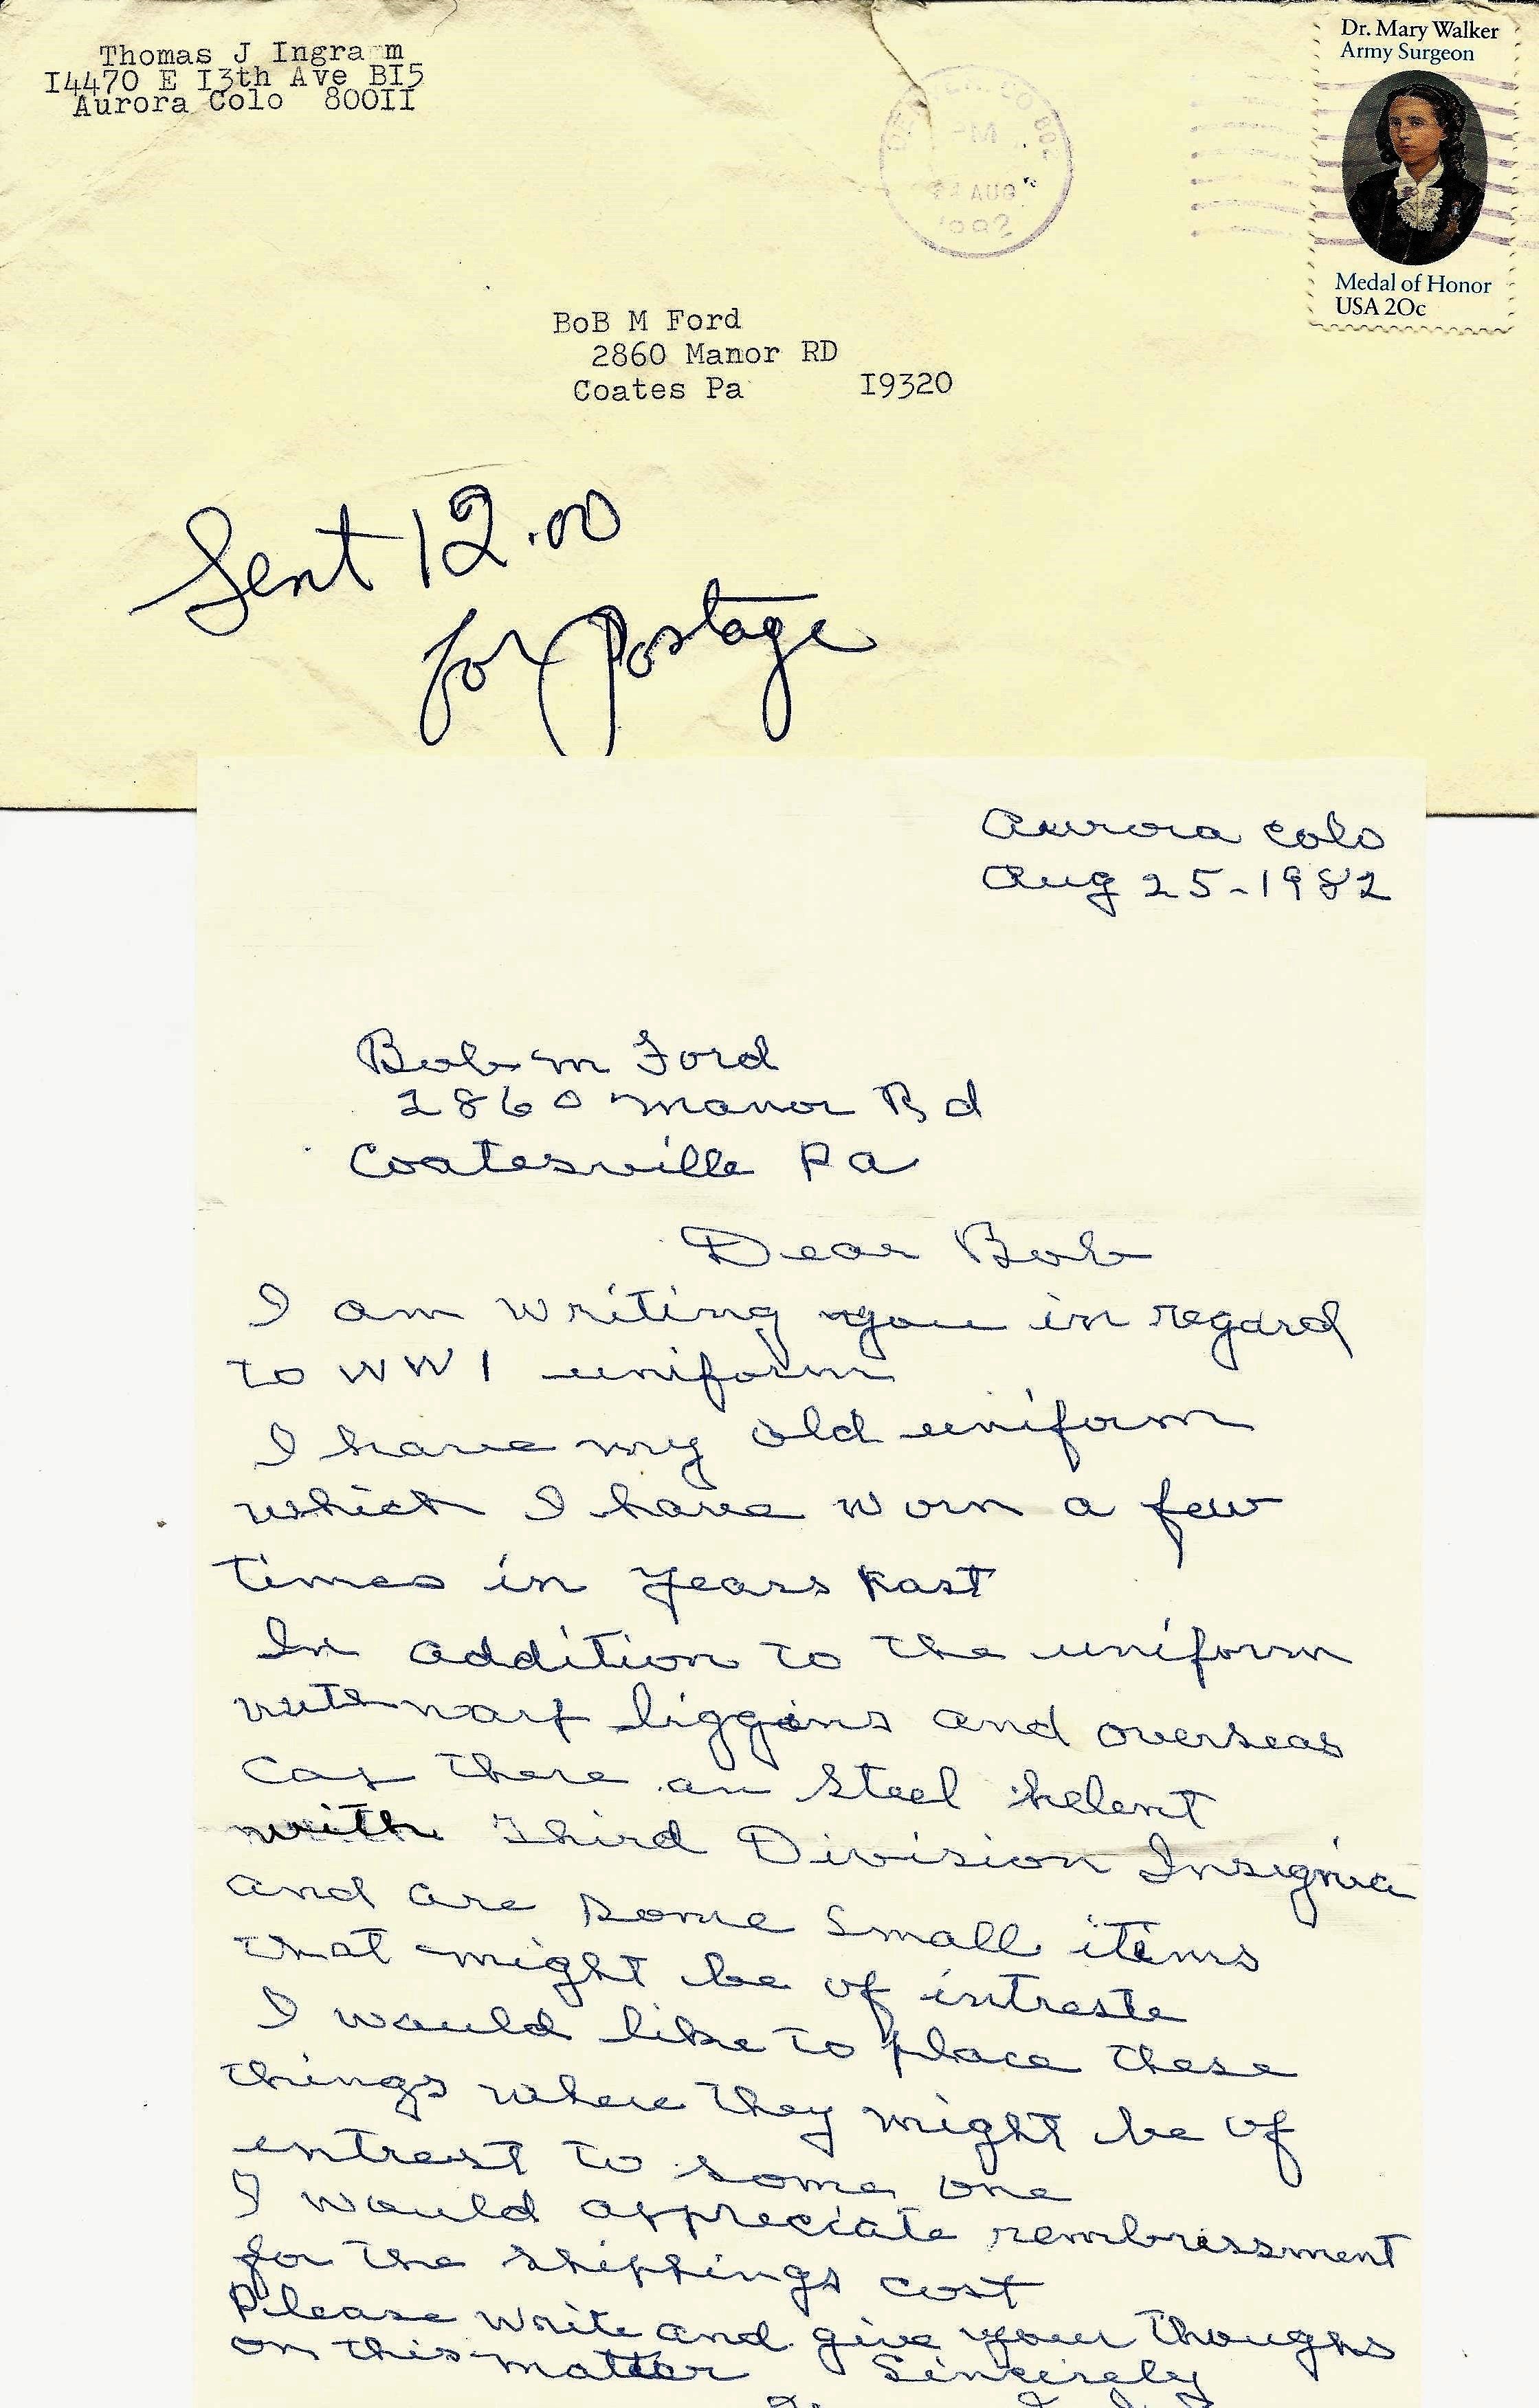 Thomas J Ingra m
I4470 E I3th Ave BI5
Aurora Colo 800II
Dr. Mary Walker
Army Surgeon
PM
AUG
Medal of Honor
USA 20c
BoB M Ford
2860 Manor RD
Coates Pa I9320
Sent 12.00
for Postage
Aurora Colo
Aug 25-1982
Bob m Ford
2860 Manor Rd
Coatesville Pa
Dear Bob
I am writing you in regard
to WW 1 uniform
I have my old uniform
which I have worn a few
times in years past
In addition to the uniform
liggins and overseas
cap there an steel helent
with Third Division Insignia
and are some small items
that might be of intreste
I would like to place these
things where they might be of
entrest to some one
I would appreciate rembrissment
for the shippings cost
Please write and give your thoughs
on this matter Sincirely